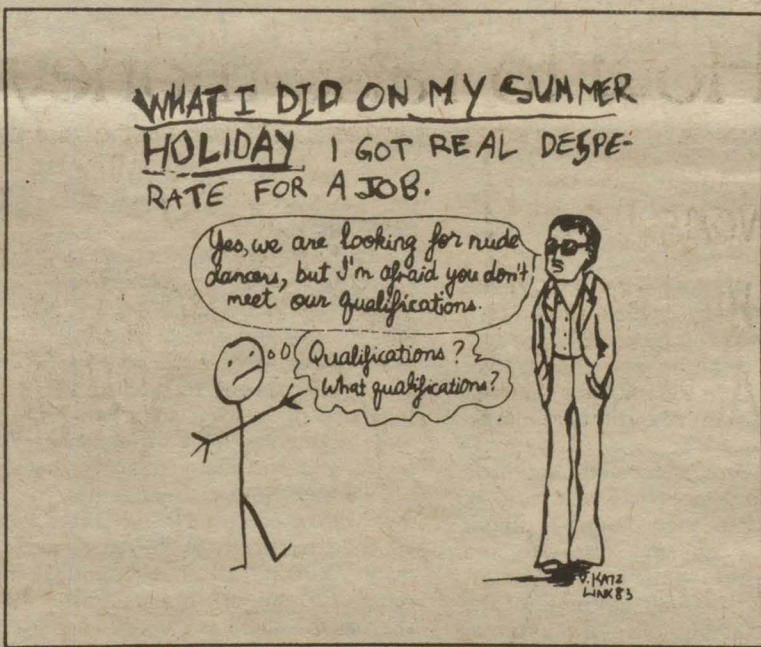 WHAT I DID ON MY SUMMER
HOLIDAY I GOT REAL DESPE-
RATE FOR A JOB.
Yes, we are looking for nude
dancers, but I'm afraid you don't
meet our qualifications.
Qualifications?
What qualifications?
V. KATZ
LINK 83